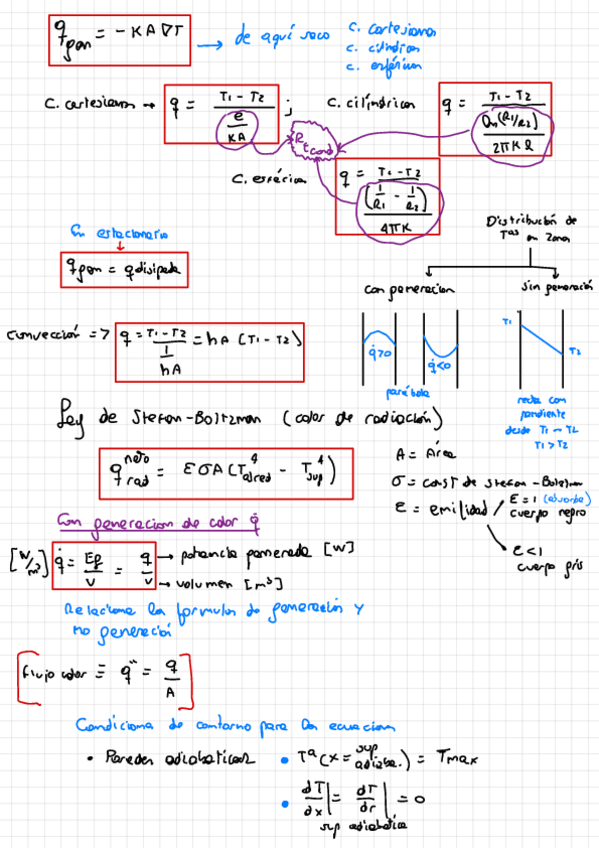 q gen = -KA∇T → de aquí saco
c. cartesianas
c. cilíndricas
c. esféricas
c. cartesianas → q = T1 - T2 / (e / KA) ;
c. cilíndricas q = T1 - T2 / (Ln(R1/R2) / 2πKL)
Rt cond
c. esférica q = T1 - T2 / ((1/R1 - 1/R2) / 4πK)
En estacionario
q gen = q disipada
Distribución de
Tas en zonas
con generacion
sin generación
q̇>0
q̇<0
parábola
T1
T2
recta con
pendiente
desde T1 → T2
T1 > T2
convección => q = T1 - T2 / (1 / hA) = hA (T1 - T2)
Ley de Stefan-Boltzman (calor de radiación)
q neto rad = εσA(T⁴alred - T⁴sup)
A = Área
σ = const de Stefan-Boltzman
ε = emilidad
ε = 1 (absorbe)
cuerpo negro
ε < 1
cuerpo gris
Con generacion de calor q̇
[W/m³] q̇ = Eg / V = q / V
→ potencia generada [W]
→ volumen [m³]
Relaciona las formulas de generación y
no generación
flujo calor ≡ q" = q / A
Condiciones de contorno para las ecuacion
• Paredes adiabaticas
• Tª(x = sup adiaba.) = Tmax
• dT/dx | = dT/dr | = 0
sup adiabática